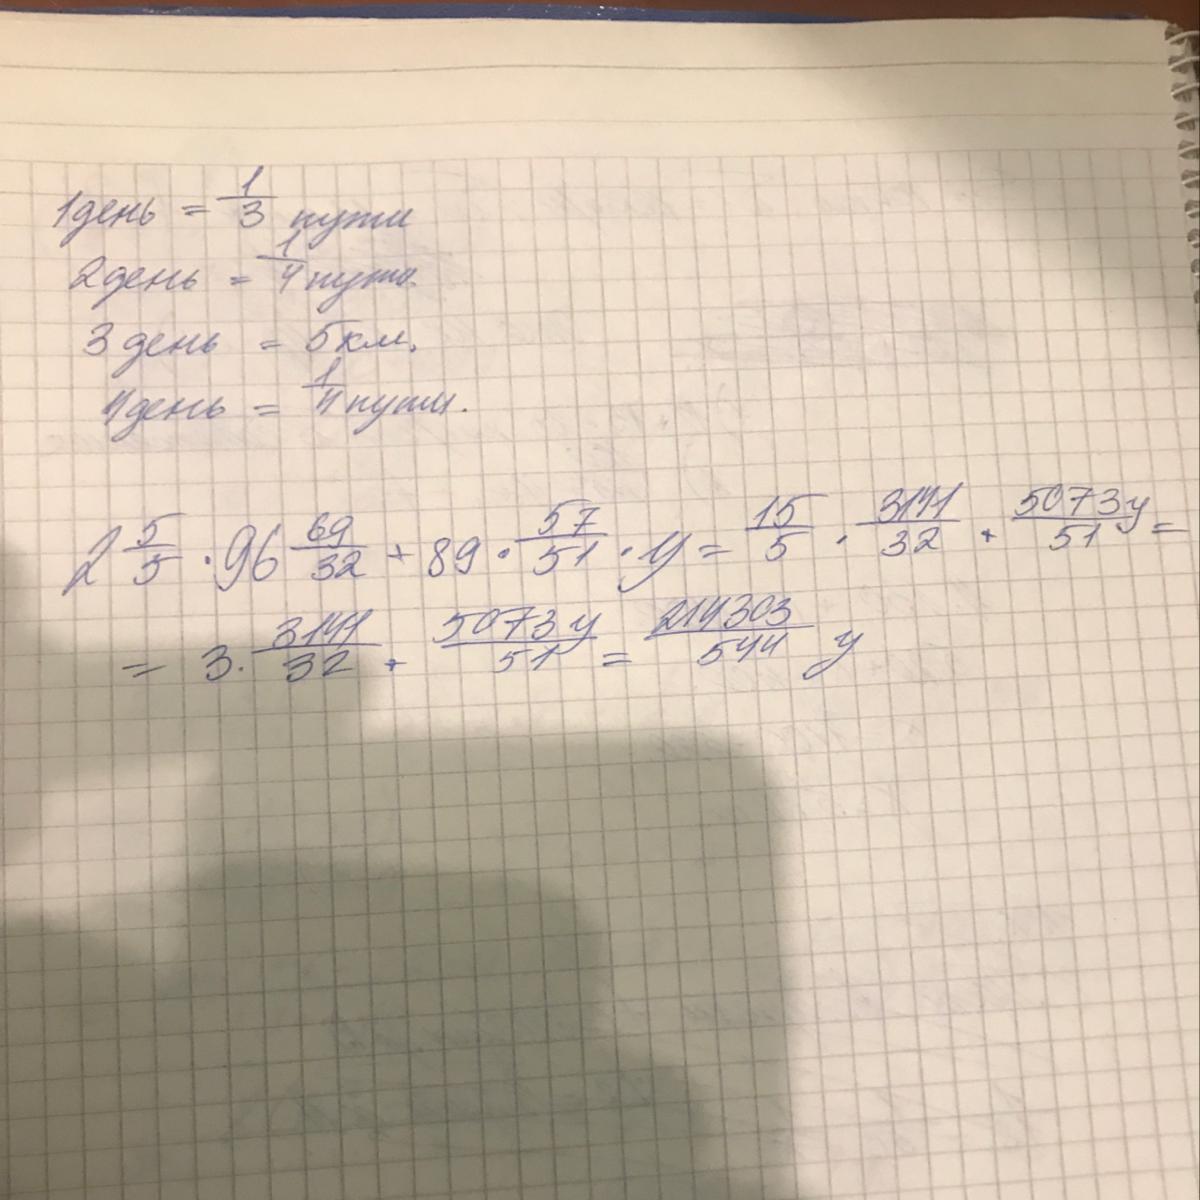 1 день = 1/3 пути
2 день = 1/4 пути.
3 день = 5 км.
4 день = 1/4 пути.
2 5/5 · 96 69/32 + 89 · 57/51 · y = 15/5 · 3141/32 + 5073y/51 =
= 3 · 3141/32 + 5073y/51 = 214303/544 y